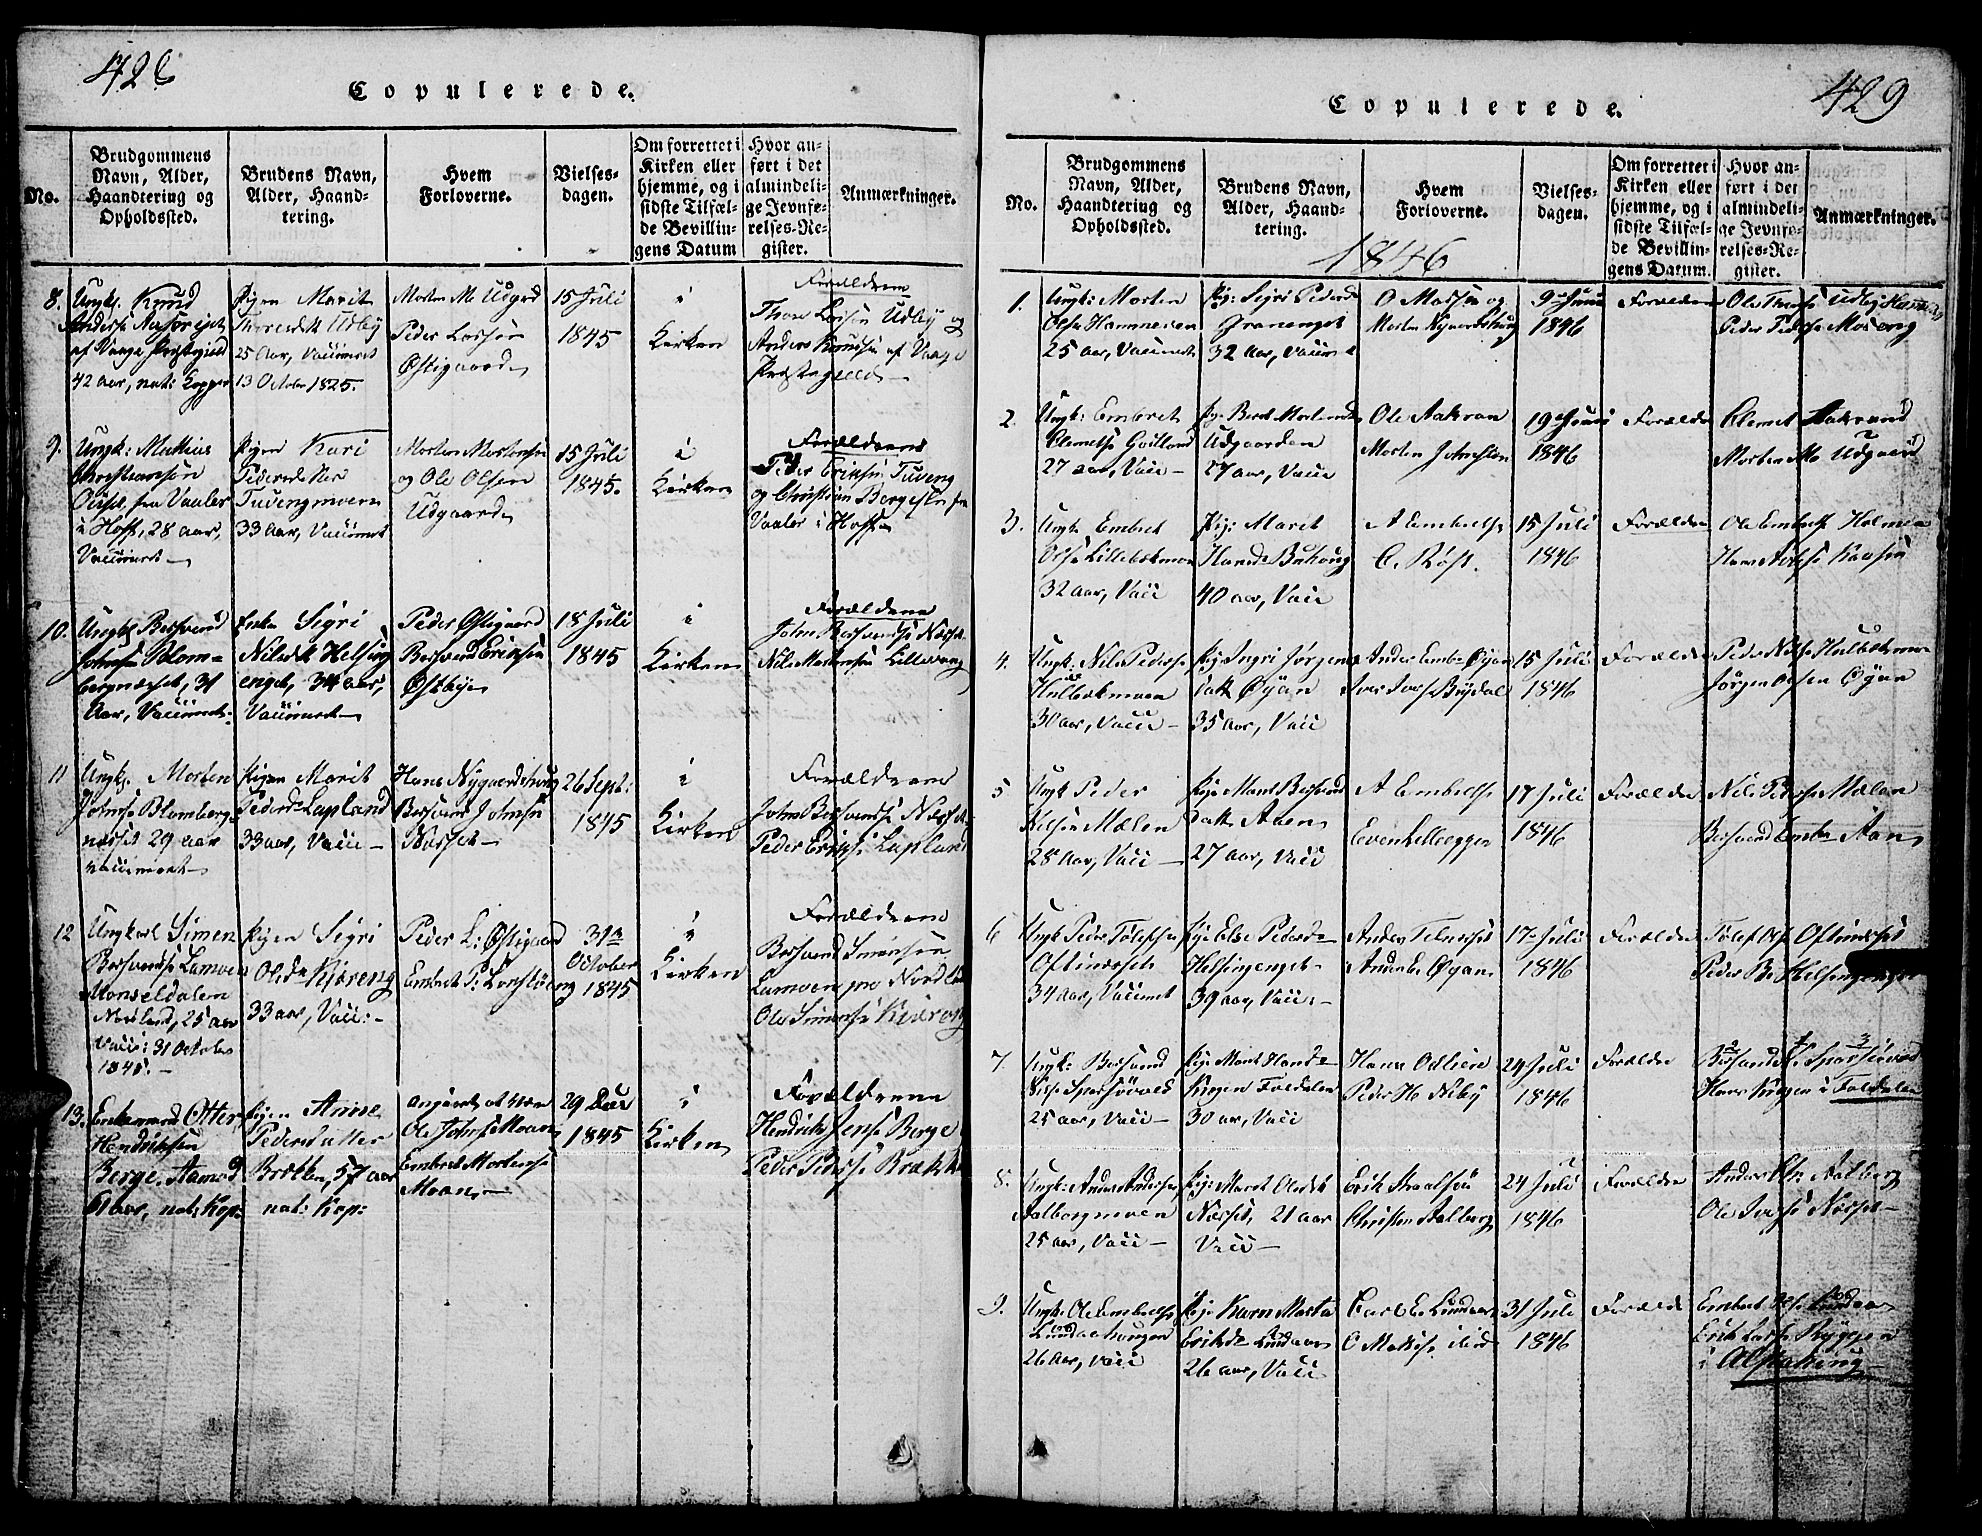 428
Copulerede.
No.
Brudgommens
Navn, Alder,
Haandtering og
Opholdssted.
Brudens Navn,
Alder, Haand-
tering.
Hvem
Forloverne.
Vielses-
dagen.
Om forrettet i
Kirken eller
hjemme, og i
sidste Tilfæl-
de Bevillin-
gens Datum
Hvor an-
ført i det
almindeli-
ge Jevnfø-
relses-Re-
gister.
Anmærkninger.
8.
Ungk. Knud
Anderss
af Vaage Præstegjeld
42 aar, nat: Kopper
Pigen Marit
Thoresdtr Udby
25 Aar, Vaccineret
13 October 1825.
Morten M. Udgrd
Peder Larsen
Østigaard
15 Juli
1845
i
Kirken
Forældrene
Thore Larsen Udby og
Anders Knudsen af Vaage
Præstegield
9.
Ungk: Mathias
Christiansen
fra Vaaler
i Hoff, 28 aar,
Vaccineret
Pigen Kari
Pedersdatter
Tuvengmoen
33 Aar, Vaccineret
Morten Mortensen
og Ole Olsen
Udgaard
15 Juli
1845.
i
Kirken
Forældrene
Peder Eriksen Tuveng
og Christian fra
Vaaler i Hoff
10.
Ungk. Bersvend
Johnsen Blom-
bergnæsset, 31
Aar, Vaccineret.
Enke Sigri
Nilsdtr Helsing
enget, 34 aar,
Vaccineret
Peder Østigaard
Bersvend Eriksen
Østbye
18 Juli
1845
i
Kirken
Forældrene
John Bersvendse Næsset
Nils Mortensen Lillevang
11
Ungk. Morten
Johnse Blomberg-
næsset 29 aar
vaccineret
Pigen Marit
Pedersdr Lapland
33 aar, Vacc
Hans Nygaardshaug
Bersvend Johnsen
Næsset
26 Sept:
1845
i
Kirken
Forældrene
John Bersvendse Næsset
Peder Erikse Lapland
12
Ungkarl Simen
Bersvendse Lamoen
Monseldalen
Nordland, 25 aar
Vacc: 31 October
1845.
Pigen Sigri
Olsdr Kjøreng
33 aar, Vacc:
Peder L: Østigaard
Embret P:
31te
October
1845
i
Kirken
Forældrene
Bersvend Simensen
Lamoen
Ole Simense Kjøreng
13.
Enkemand Otter
Hendriksen
Berge, Aamod
aar, nat: Kop:
Pigen Anne
Pedersdatter
Brække, 57 aar
nat: Kop:
Angivet at være
Ole Johnse Moan
Embret Mortense
Moan
29 Dec
1845
i
Kirken
Forældrene
Hendrich Jense Berge
Peder Pederse Brække
429
Copulerede.
No.
Brudgommens
Navn, Alder,
Haandtering og
Opholdssted.
Brudens Navn,
Alder, Haand-
tering.
Hvem
Forloverne.
Vielses-
dagen.
Om forrettet i
Kirken eller
hjemme, og i
sidste Tilfæl-
de Bevillin-
gens Datum.
Hvor an-
ført i det
almindeli-
ge Jevnfø-
relses-Re-
gister.
Anmærkninger.
1846
1.
Ungk: Morten
Olse
25 aar, Vaccineret
Pig: Sigri Pedersd
Granenget
32 Aar, Vacc
O Madsen og
Morten Nygaardshaug
9de Juni
1846
Forældrene
Ole Udby
Peder Pederse Moseng
2.
Ungk: Embret
Clemetse
27 aar, Vacc
Pig: Berit Mortensd
Udgaarden
27 aar, Vacc
Ole Aakran
Morten Johnsen
19de Juni
1846
Forældre
Clemet Aakrand
Morten M. Udgaard
3.
Ungk: Embret
Olse Lillebækmoen
32 aar, Vacc
Pig: Marit
Hansd
40 aar, Vacc
A Embretse
O. Røst.
15 Juli
1846
Forældre
Ole Embretse Holmen
Hans
4.
Ungk: Nils Pederse
Hulbækmoen
30 aar, Vacc
Pig Ingri Jørgens
Datt Øyan
35 aar, Vacc
Anders Embr Øyan
Iver Iverse Brydal
15 Juli
1846
Forældre
Peder Nilse Hulbækmoen
Jørgen Olsen Øyan
5
Ungk Peder
Nilsen Mælen
28 Aar, Vacc
Pige Marit Bersvend
Datt Aaen
27 aar, Vacc
A Embretse
Even
17 Juli
1846
Forældre
Nils Pederse Mælen
Bersvend Embr Aaen
6
Ungk Peder Tolefsen
Oftinæsset
34 aar, Vaccineret
Pige Else Pedersdr
Helsingenget
39 aar, Vacc
Anders Telnesset
Øyan
17de Juli
1846
Forældre
Tolef Ols Oftinæsset
Peder B. Helsingenget
7.
Ungk: Bersvend
Nilse Sparsjøvold
25 aar, Vacc
Pige Marit Hansdr
Krogen Foldalen
30 aar, Vacc
Hans Odlien
Peder H. Neby
24 Juli
1846
Forældre
Bersvend Sparsjøvold
Hans Krogen i Foldalen
8.
Ungk: Anders Anderse
Aalborgmoen
25 aar, Vacc
Pig: Marit Olsdtr
Næsset, 21 aar
Vacc
Erik
Christen Aalberg
24 Juli
1846
Forældre
Anders Aalberg
Ole Næsset
9.
Ungk: Ole Embretse
Lundaahaugen
26 aar, Vacc
Pige Karn Marta
Eriksdr Lundaas
26 aar, Vacc
Carl E. Lundaas
O
31 Juli
1846
Forældre
Embret Olse Lundaas
Erik Larse Ryggen
i Alfstahaug